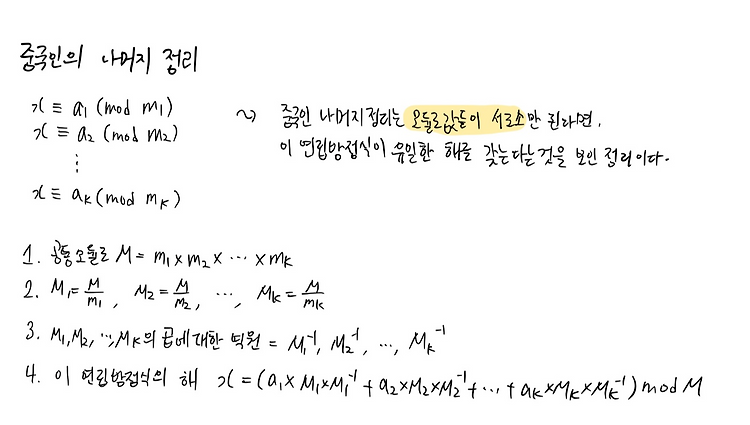 중국인의 나머지 정리
x ≡ a₁ (mod m₁)
x ≡ a₂ (mod m₂)
⋮
x ≡ aₖ (mod mₖ)
~> 중국인 나머지정리는 모듈로값들이 서로소만 된다면,
이 연립방정식이 유일한 해를 갖는다는것을 보인 정리이다.
1. 공통모듈로 M = m₁ × m₂ × ⋯ × mₖ
2. M₁ = M/m₁ , M₂ = M/m₂ , ⋯, Mₖ = M/mₖ
3. M₁, M₂, ⋯, Mₖ의 곱에대한 역원 = M₁⁻¹, M₂⁻¹, ⋯, Mₖ⁻¹
4. 이 연립방정식의 해 x = (a₁ × M₁ × M₁⁻¹ + a₂ × M₂ × M₂⁻¹ + ⋯ + aₖ × Mₖ × Mₖ⁻¹) mod M